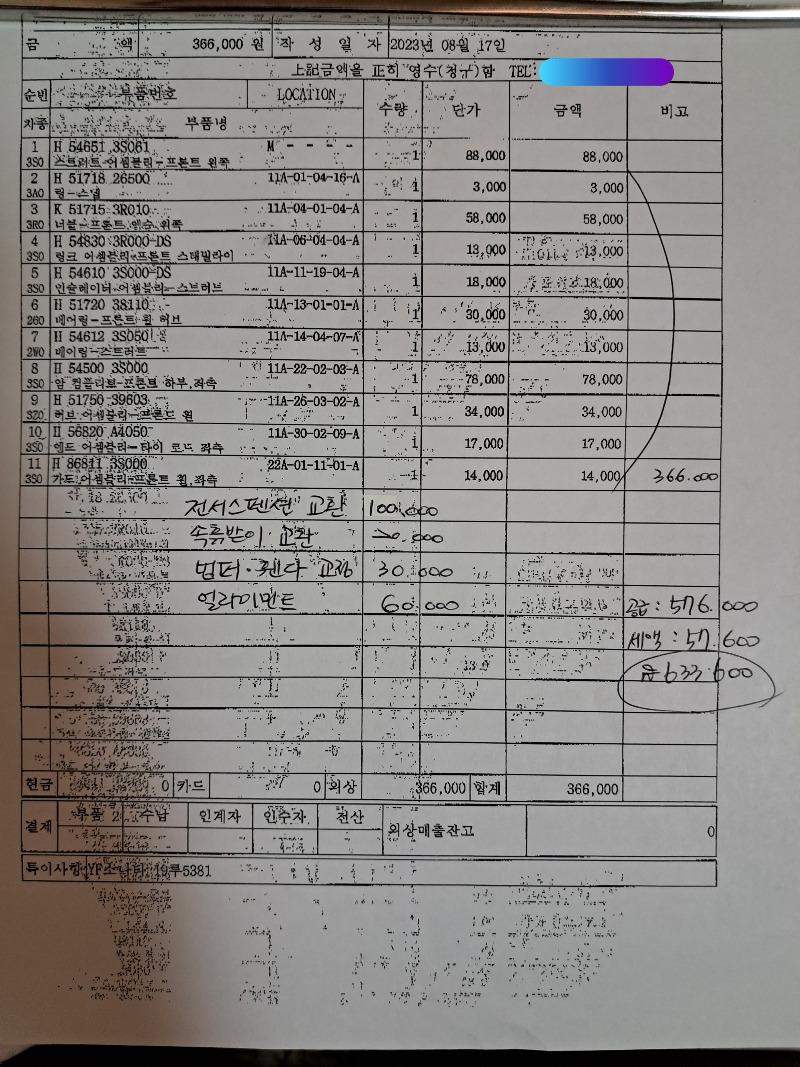 금 액 366,000 원 작 성 일 자 2023년 08월 17일
上記금액을 正히 영수(청구)함 TEL:
순번 부품번호 LOCATION 수량 단가 금액 비고
차종 부품명
1 H 54651 3S061 M - - - - 1 88,000 88,000
3S0 스트러트 어셈블리-프론트 왼쪽
2 H 51718 26500 11A-01-04-16-A 1 3,000 3,000
3A0 링-스냅
3 K 51715 3R010 11A-04-01-04-A 1 58,000 58,000
3R0 너클-프론트 왼쪽
4 H 54830 3R000-DS 11A-06-04-04-A 1 13,000 13,000
3S0 링크 어셈블리-프론트 스태빌라이
5 H 54610 3S000-DS 11A-11-19-04-A 1 18,000 18,000
3S0 인슐레이터 어셈블리-스트러트
6 H 51720 3S110 11A-13-01-01-A 1 30,000 30,000
2G0 베어링-프론트 휠 허브
7 H 54612 3S050 11A-14-04-07-A 1 13,000 13,000
2W0 베어링-스트러트
8 H 54500 3S000 11A-22-02-03-A 1 78,000 78,000
3S0 암 컴플리트-프론트 하부,좌측
9 H 51750 39603 11A-26-03-02-A 1 34,000 34,000
3Z0 허브 어셈블리-프론트 휠
10 H 56820 A4050 11A-30-02-09-A 1 17,000 17,000
3S0 엔드 어셈블리-타이 로드 좌측
11 H 86811 3S000 22A-01-11-01-A 1 14,000 14,000 366.000
3S0 가드 어셈블리-프론트 휠,좌측
전서스펜션 교환 100,000
속휴받이 교환 20.000
범퍼.휀다 교정 30.000
얼라이먼트 60.000 공급: 576.000
세액: 57.600
633.600
현금 0 카드 0 외상 366,000 합계 366,000
결제 부품 2 수납 인계자 인수자 전산 외상매출잔고 0
특이사항 YF소나타 19루5381